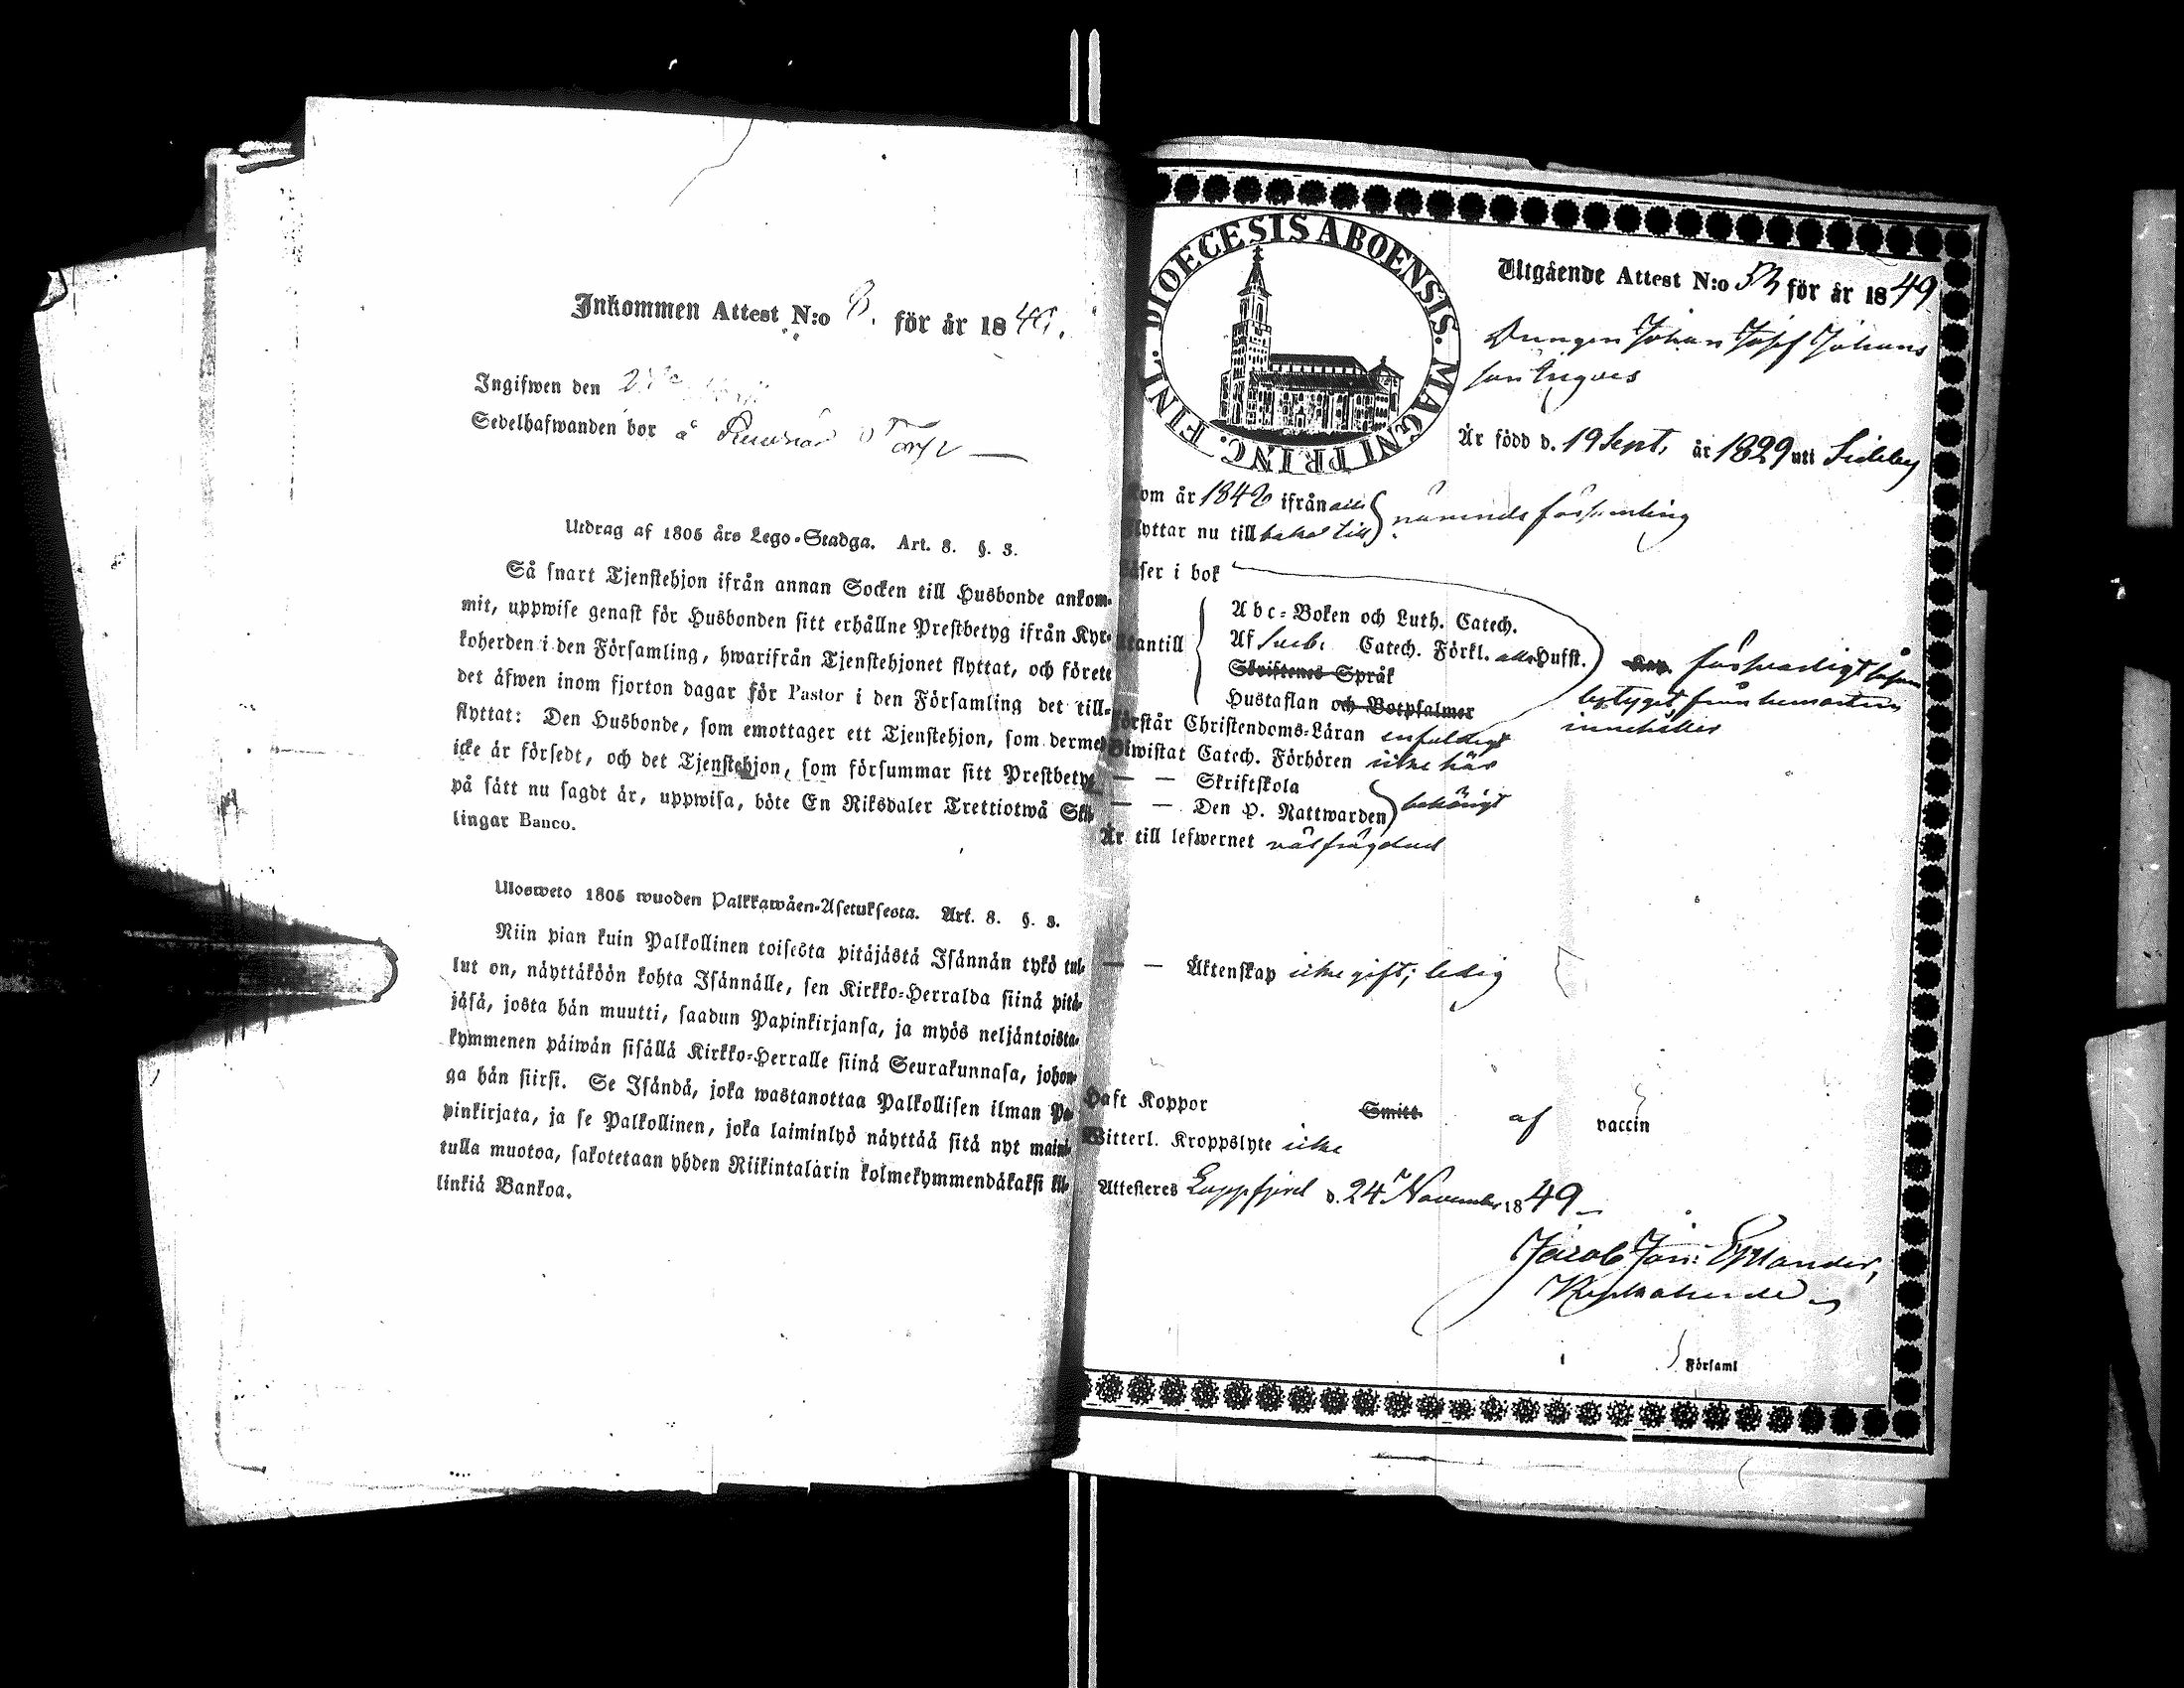 Inkommen Attest N:o 8. för år 1849.
Ingifwen den
Sedelhafwanden bor å Torp
Utdrag af 1805 års Lego-Stadga. Art. 8. §. 3.
Så snart Tjenstehjon ifrån annan Socken till Husbonde ankom-
mit, uppwise genast för Husbonden sitt erhållne Prestbetyg ifrån Kyr-
koherden i den Församling, hwarifrån Tjenstehjonet flyttat, och förete
det äfwen inom fjorton dagar för Pastor i den Församling det till-
flyttat: Den Husbonde, som emottager ett Tjenstehjon, som dermed
icke är försedt, och det Tjenstehjon, som försummar sitt Prestbetyg
på sätt nu sagdt är, uppwisa, böte En Riksdaler Trettiotwå Skil-
lingar Banco.
Ulosweto 1805 wuoden Palkkawäen-Asetuksesta. Art. 8. §. 3.
Niin pian kuin Palkollinen toisesta pitäjästä Isännän tykö tul-
lut on, näyttäköön kohta Isännälle, sen Kirkko-Herralda siinä pitä-
jäsä, josta hän muutti, saadun Papinkirjansa, ja myös neljäntoista-
kymmenen päiwän sisällä Kirkko-Herralle siinä Seurakunnasa, johon-
ga hän siirsi. Se Isändä, joka wastanottaa Palkollisen ilman Pa-
pinkirjata, ja se Palkollinen, joka laiminlyö näyttää sitä nyt maini-
tulla muotoa, sakotetaan yhden Riikintalarin kolmekymmendäkaksi kil-
linkiä Bankoa.
DIOECESIS ABOENSIS. MAGNI PRINC. FINL.
Utgående Attest N:o 53 för år 1849
Drengen Johan Josef Johans
son Ingves
Är född d. 19 Sept. år 1829 uti Sideby
Kom år 1848 ifrån
flyttar nu till bakes till nämnde församling
Läser i bok
Utantill
Abc-Boken och Luth. Catech.
Af Sveb. Catech. Förkl. Hufst.
Skriftenes Språk
Hustaflan och Botpsalmer
försvarligt
betyget från hemorten
innehåller
Förstår Christendoms-Läran enfaldigt
Biwistat Catech. Förhören icke här
— — Skriftskola
— — Den H. Nattwarden behörigt
Är till lefwernet välfrägdad
— — Äktenskap icke gift; ledig
Haft Koppor Smitt af vaccin
Witterl. Kroppslyte icke
Attesteras Lappfjerd d. 24 November 1849
Jacob Joh: Estlander,
Kyrkoherde
i Församl